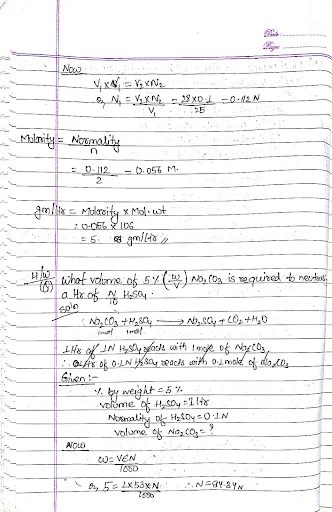 Date:
Page:
Now
V₁ × N₁ = V₂ × N₂
or, N₁ = V₂ × N₂ / V₁ = 28 × 0.1 / 25 = 0.112 N
Molarity = Normality / n
= 0.112 / 2 = 0.056 M.
gm/ltr = Molarity × Mol. wt
= 0.056 × 106
= 5. gm/ltr //
H/W
What volume of 5% (w/v) Na₂CO₃ is required to neutralize
a ltr of N/10 H₂SO₄.
soln
Na₂CO₃ + H₂SO₄ → Na₂SO₄ + CO₂ + H₂O
1mol 1mol
1 ltr of 1N H₂SO₄ reacts with 1 mole of Na₂CO₃
∴ ltr of 0.1N H₂SO₄ reacts with 0.1 mole of Na₂CO₃
Given :-
% by weight = 5 %
volume of H₂SO₄ = 1 ltr
Normality of H₂SO₄ = 0.1N
volume of Na₂CO₃ = ?
Now
W = VEN / 1000
or, 5 = 1×53×N / 1000 ∴ N = 94.34N